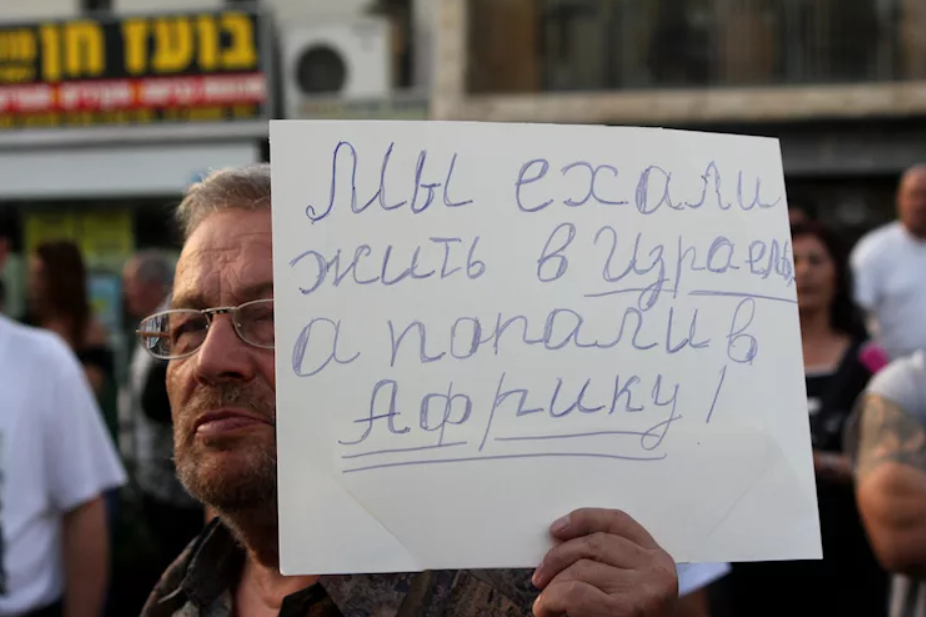 בועז חן
Мы ехали
жить в Израель,
а попали в
Африку!